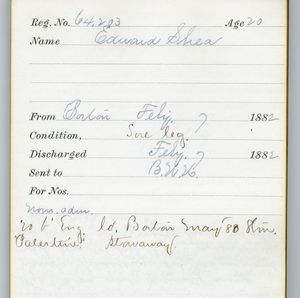 Reg. No. 64,293 Age 20
Name Edward Shea
From Boston Feby. 7 1882
Condition, Sore leg.
Discharged Feby. 7 1882
Sent to B.W.H.
For Nos.
nom. adm.
20 b' Eng. Co. Boston May 80 Stm.
Palestine. Stowaway